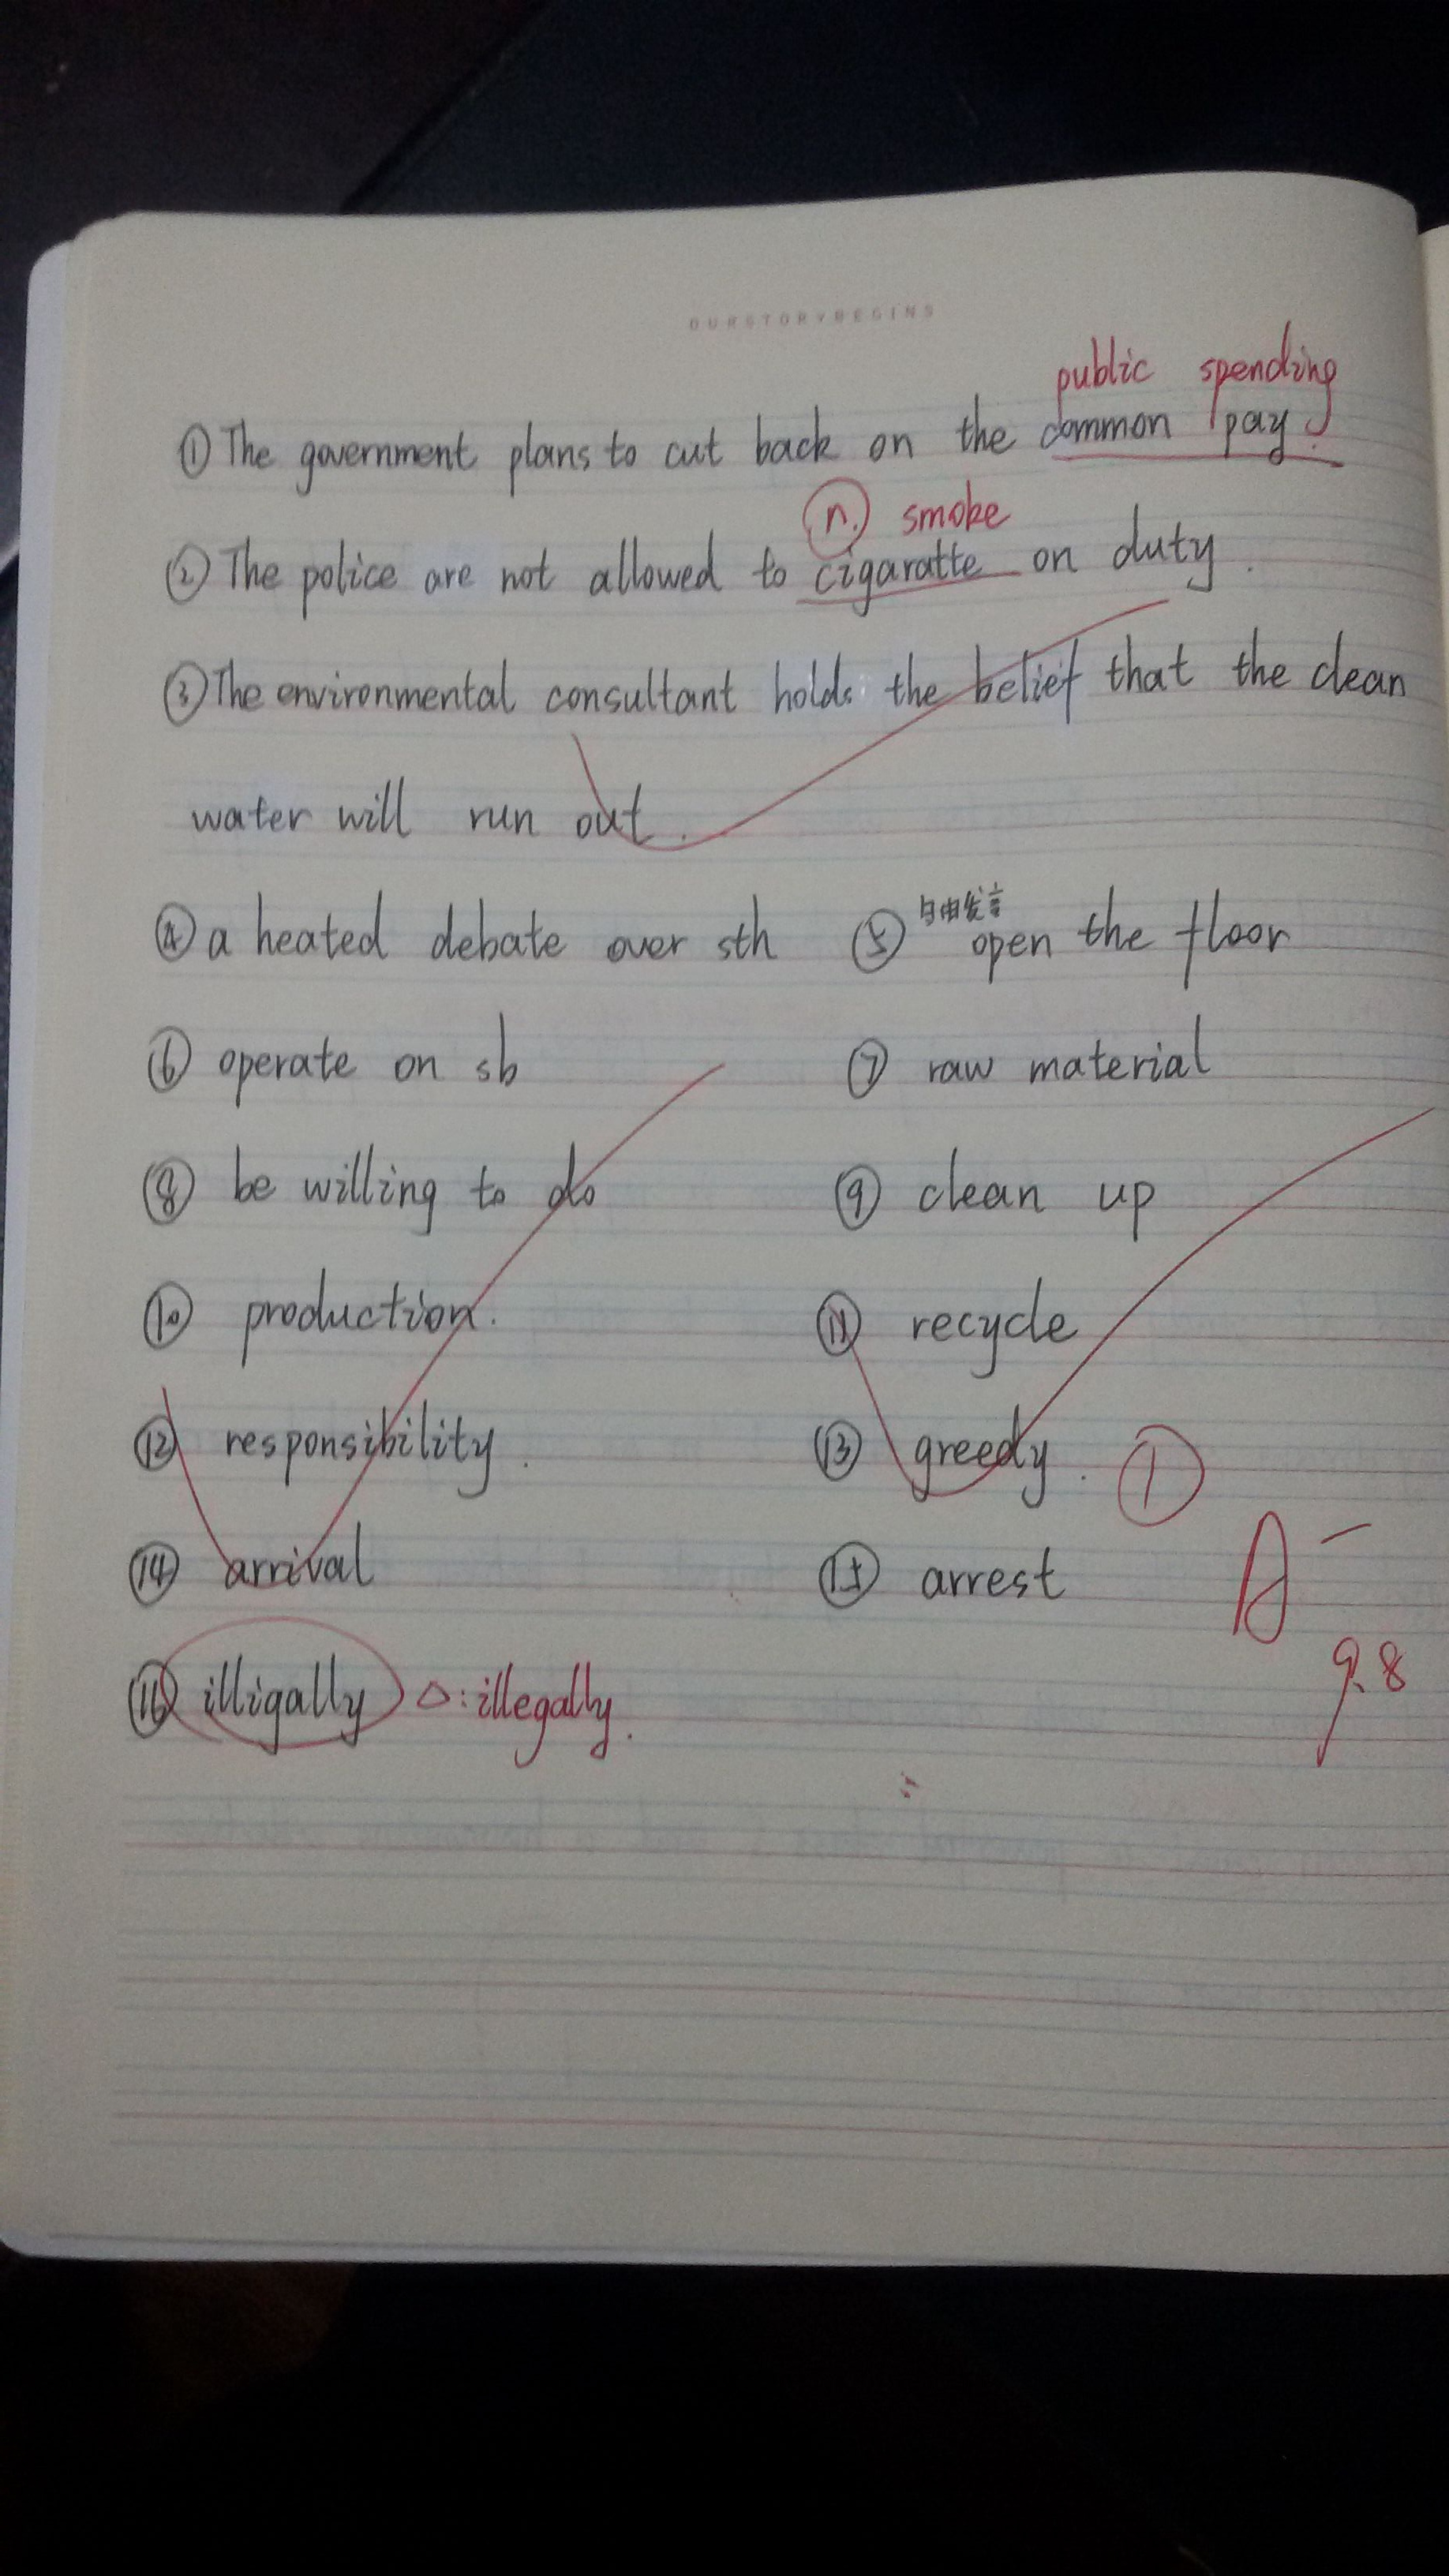 OURSTORYBEGINS
public spending
①The government plans to cut back on the common pay.
n. smoke
②The police are not allowed to cigaratte on duty.
③The environmental consultant holds the belief that the clean
water will run out.
自由发言
④a heated debate over sth ⑤ open the floor
⑥ operate on sb ⑦ raw material
⑧ be willing to do ⑨ clean up
⑩ production. ⑪ recycle
⑫ responsibility. ⑬ greedy. ①
⑭ arrival ⑮ arrest A-
9.8
⑯ illigally △:illegally.